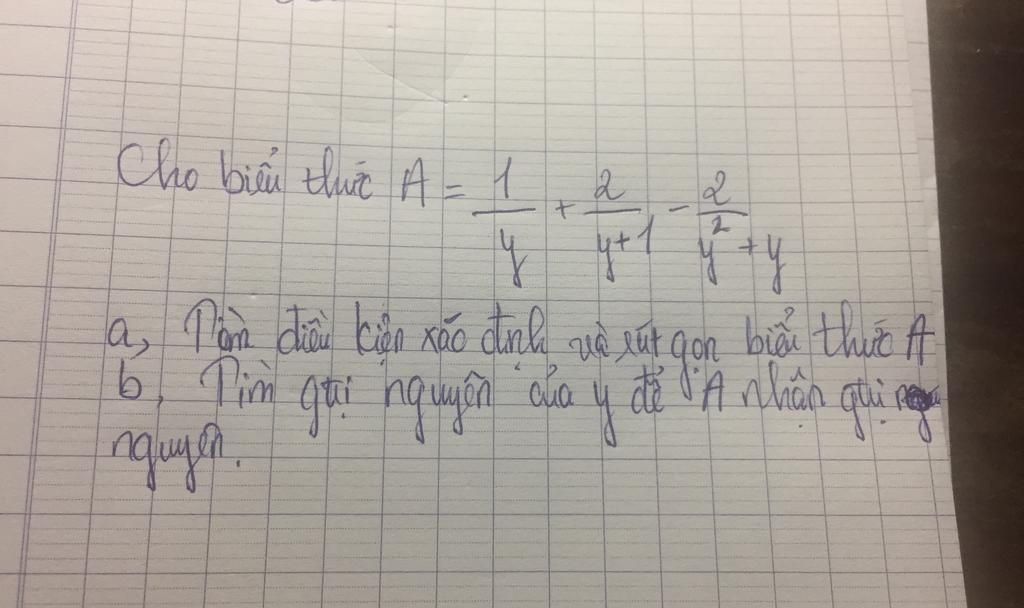 Cho biểu thức A = 1/y + 2/(y+1) - 2/(y²+y)
a, Tìm điều kiện xác định và rút gọn biểu thức A
b, Tìm gtrị nguyên của y để A nhận gtrị
nguyên.